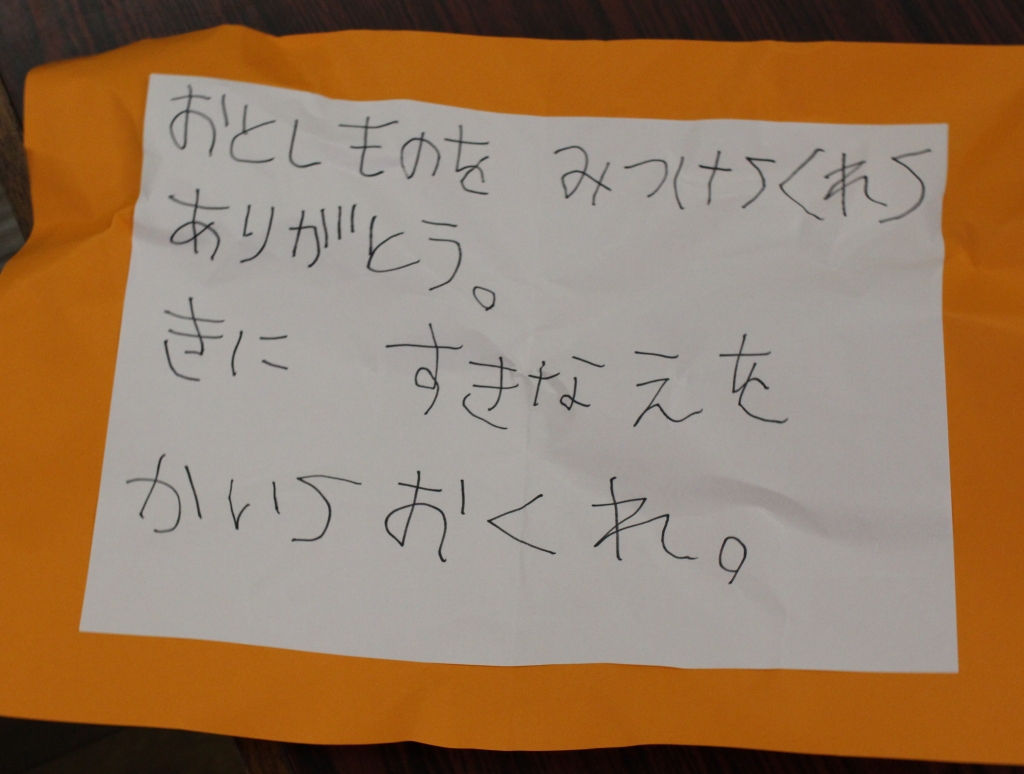 おとしものを みつけてくれて
ありがとう。
きに すきなえを
かいておくれ。